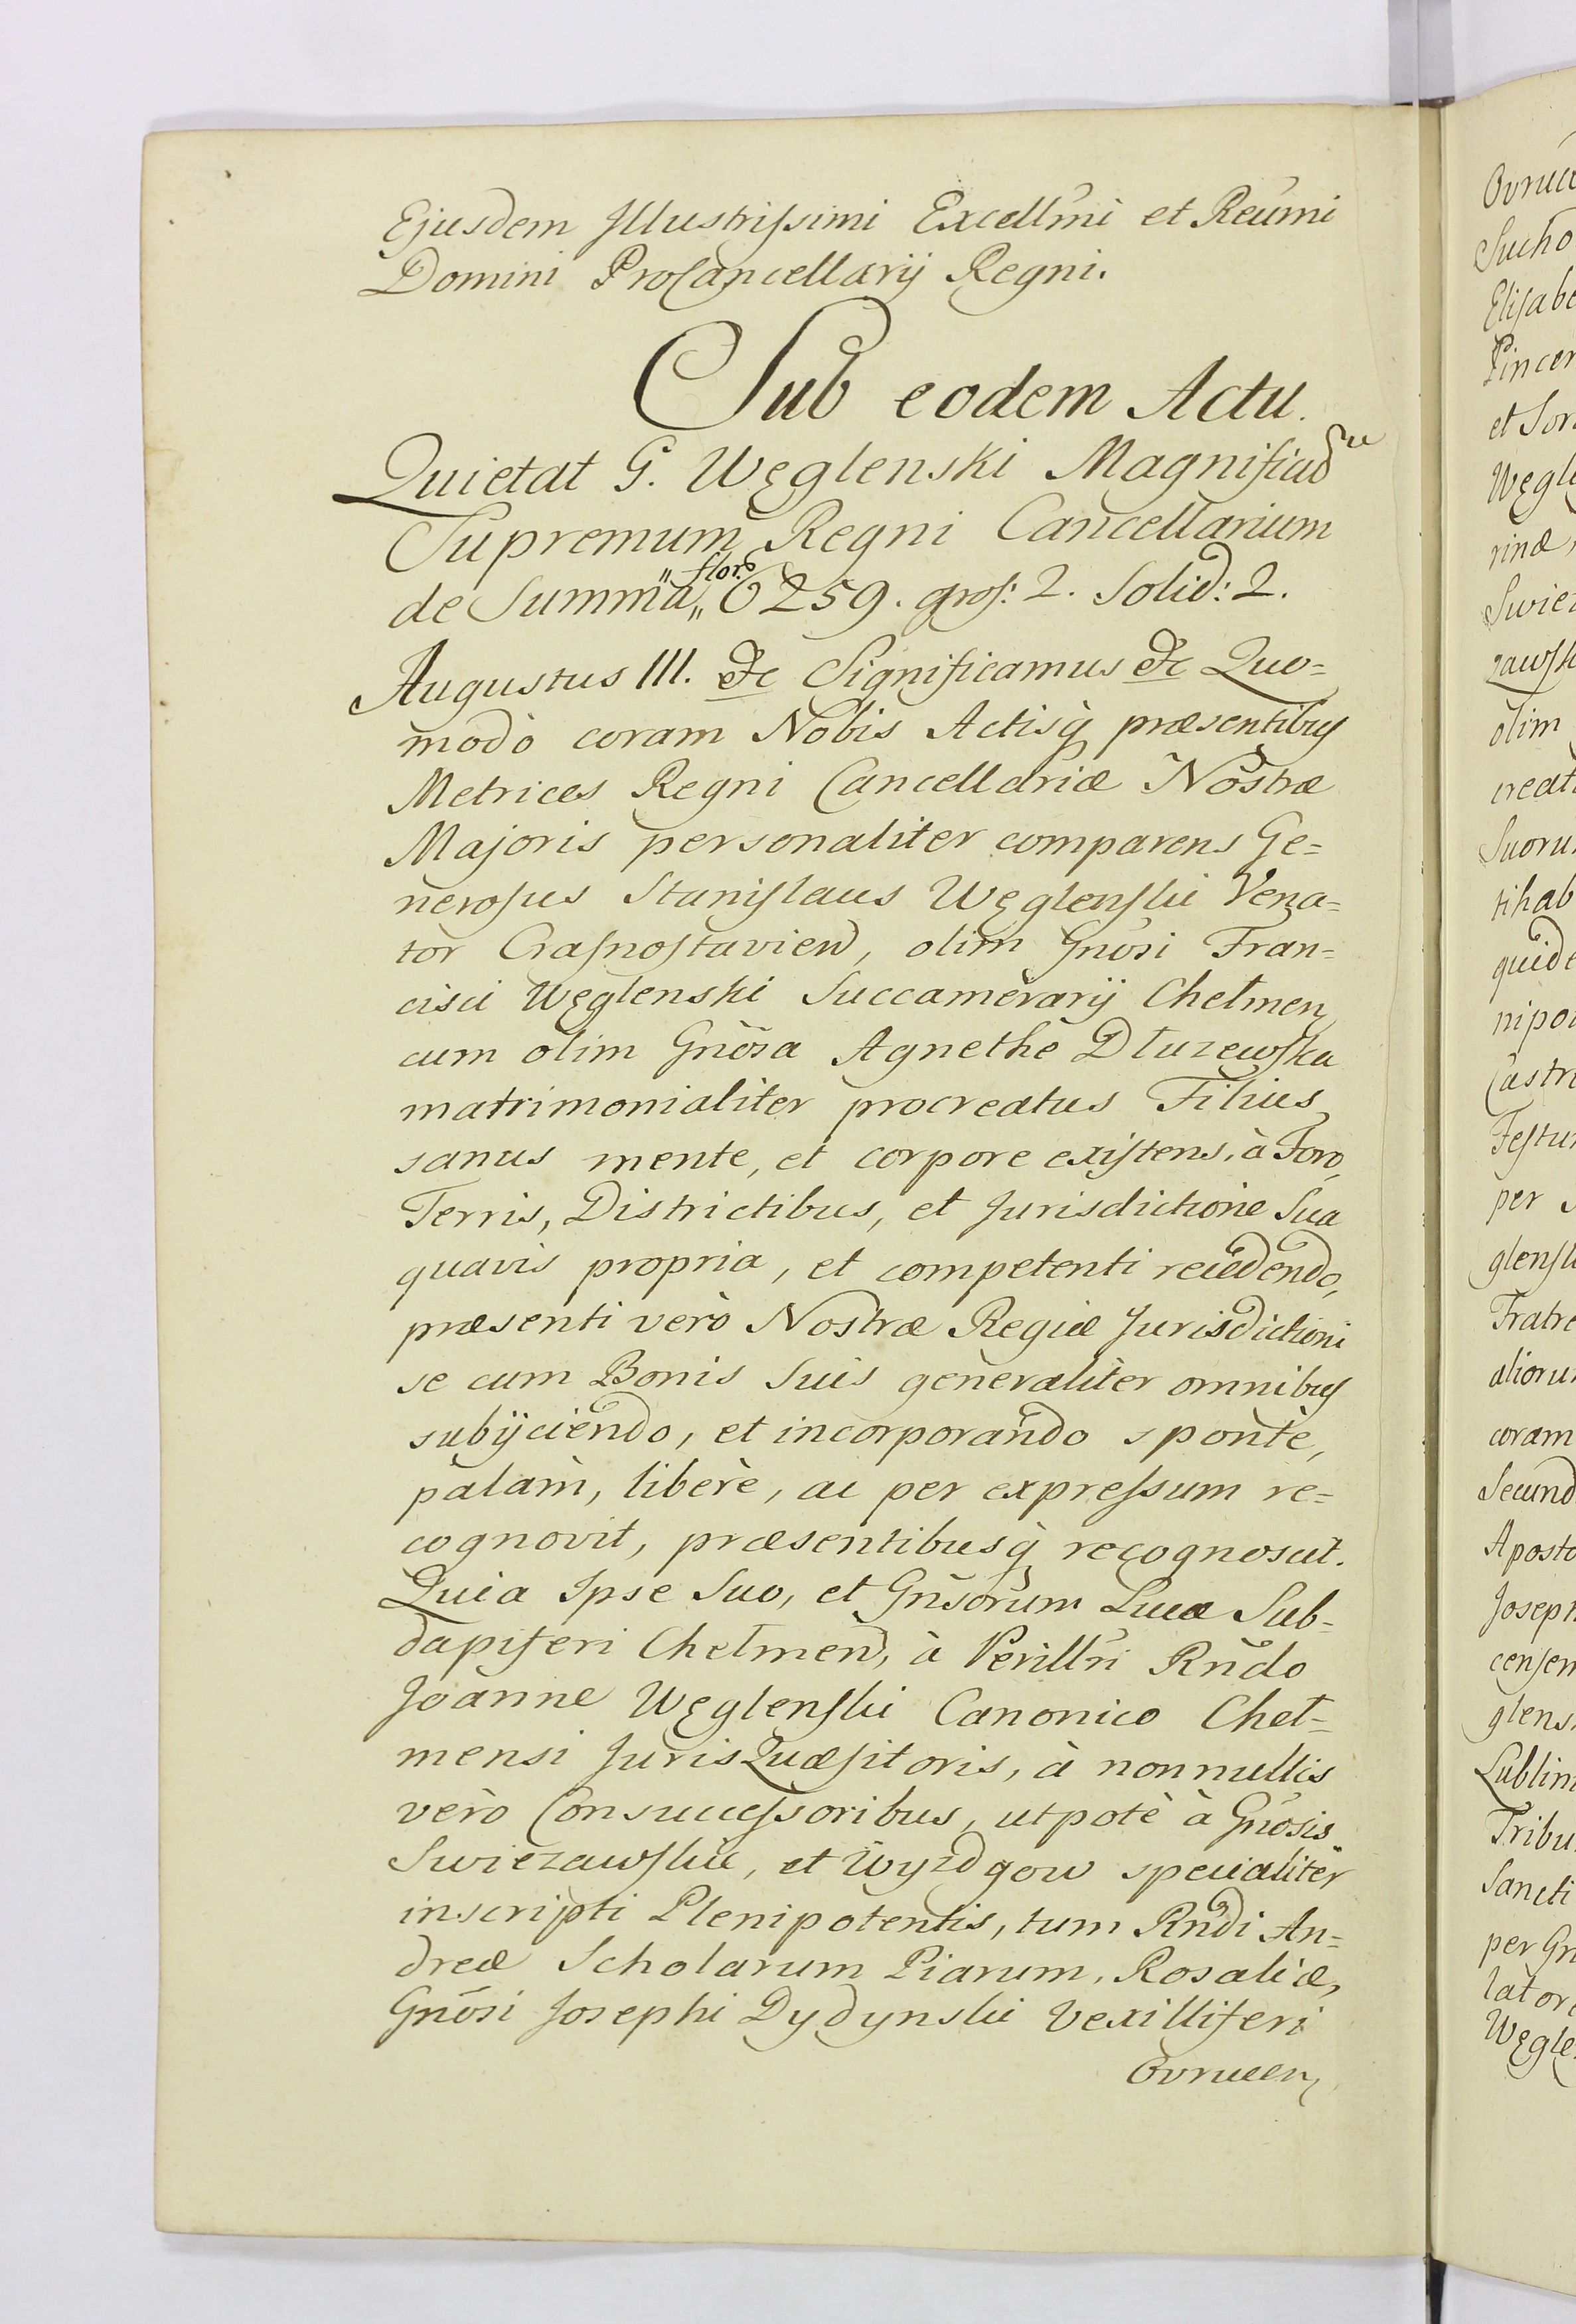 Ejusdem Jllustriſsimi Excellm̃i et Reũmi
Domini ProCancellarij Regni.
Sub eodem Actu.
Quietat G. Węglenski Magnificũ
Supremum Regni Cancellarium
de Summa „ flor: „ 6259. groſ: 2. Solid: 2.
Augustus III. &c Significamus &c Quo=
modò coram Nobis Actisq̀ præsentibus
Metrices Regni Cancellariæ Nostræ
Majoris personaliter comparens Ge=
neroſus Staniſlaus Węglenſki Vena=
tor Craſnoſtavien, olim Gnõsi Fran=
cisci Węglenski Succamerarij Chełmen,
cum olim Gnõsa Agnethe Dłuzewſka
matrimonialiter procreatus Filius,
sanus mente, et corpore exiſtens, à Foro,
Terris, Districtibus, et Jurisdictione Sua
quavis propria, et competenti recedendo,
præsenti verò Nostræ Regiæ Jurisdictioni
se cum Bonis Suis generaliter omnibus
subijciendo, et incorporando spontè,
palàm, liberè, ac per expreſsum re=
cognovit, præsentibusq̀ recognoscit.
Quia Ipse Suo, et Gnõsorum Lucæ Sub=
dapiferi Chełmen, à Perillri Rndo
Joanne Węglenſki Canonico Cheł=
mensi Juris Quæſitoris, à nonnullis
verò Consucceſsoribus, utpotè à Gnõsis
Swiezawſkie, et Wyzdgow specialiter
inscripti Plenipotentis, tum Rndi An=
dreæ Scholarum Piarum, Rosaliæ,
Gnõsi Josephi Dydynski Vexilliferi
Ovrucen,
Sucho
per
olim
coram
Joseph
Sancti